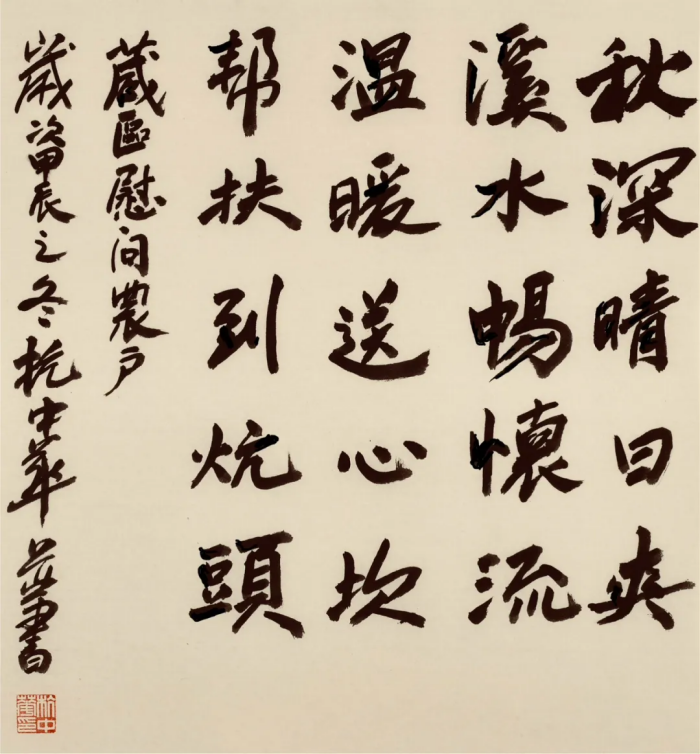 秋深晴日爽
溪水暢懷流
温暖送心坎
帮扶到炕頭
藏區慰问農户
歲次甲辰之冬杭中華並書
杭中華印